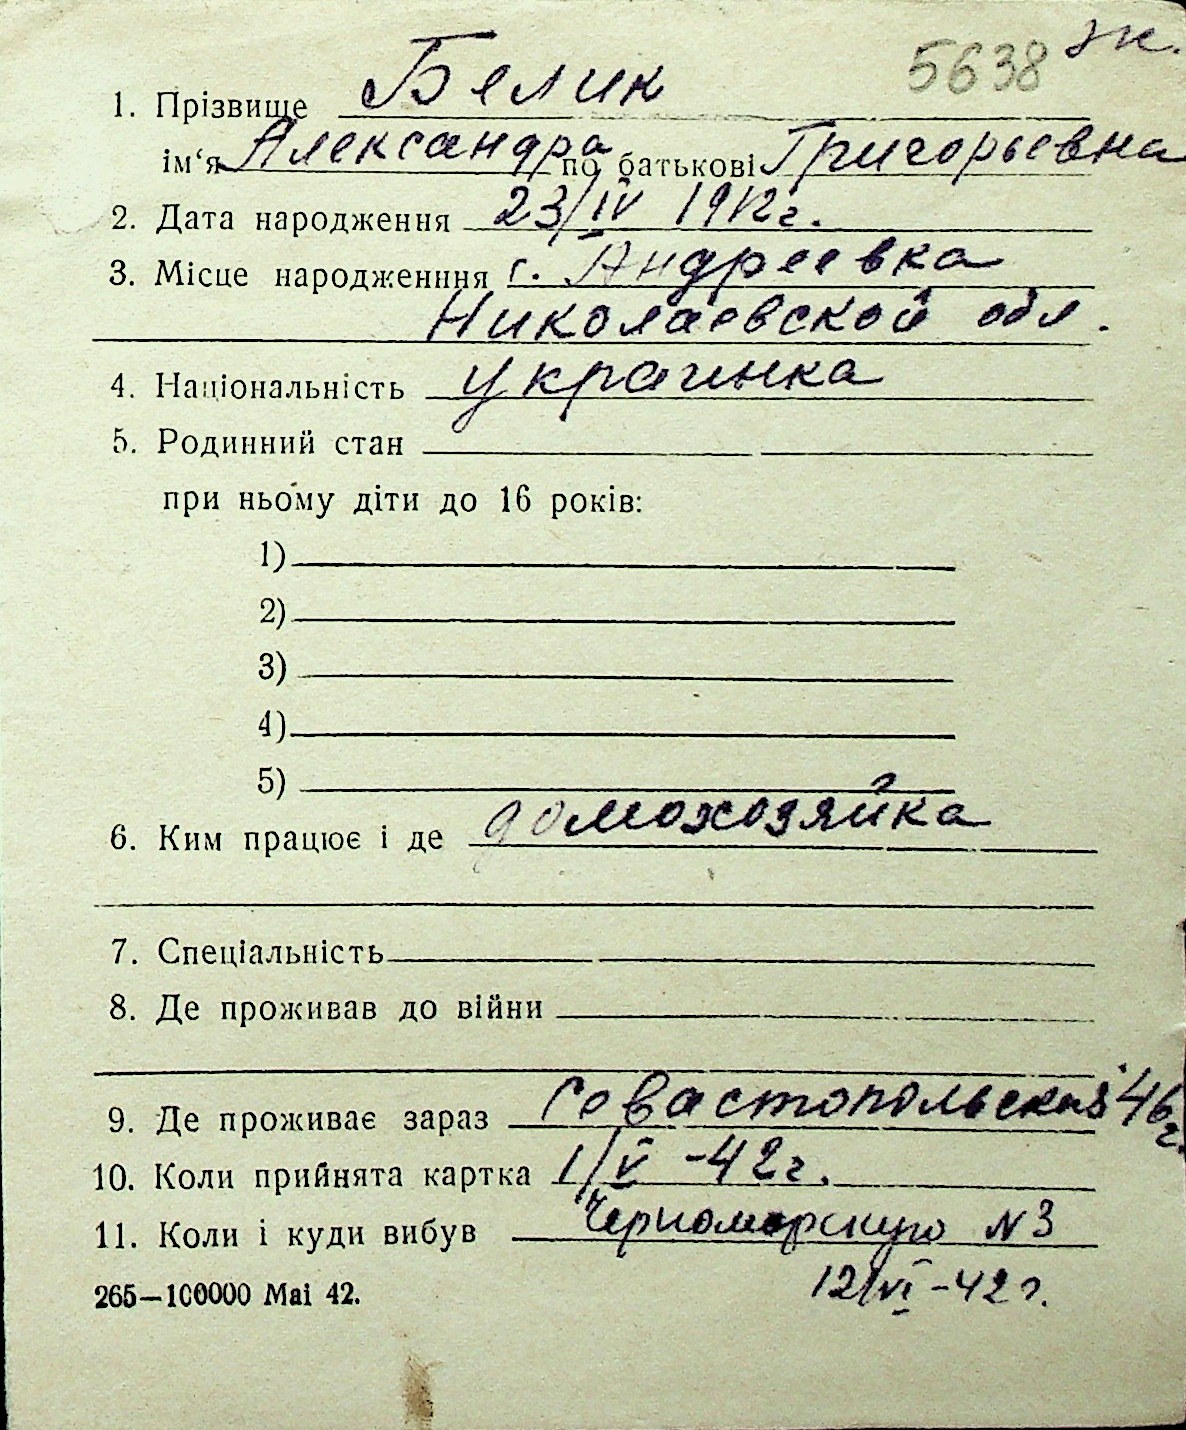 5638 эк.
1. Прізвище Белик
ім‘я Александра по батькові Григорьевна
2. Дата народження 23/IV 1912г.
3. Місце народженння г. Андреевка
Николаевской обл.
4. Національність украинка
5. Родинний стан
при ньому діти до 16 років:
1)
2)
3)
4)
5)
6. Ким працює і де домохозяйка
7. Спеціальність
8. Де проживав до війни
9. Де проживає зараз Севастопольская 46
10. Коли прийнята картка 1/V -42г.
11. Коли і куди вибув Черноморскую N3
265—100000 Mai 42. 12/VI -42г.